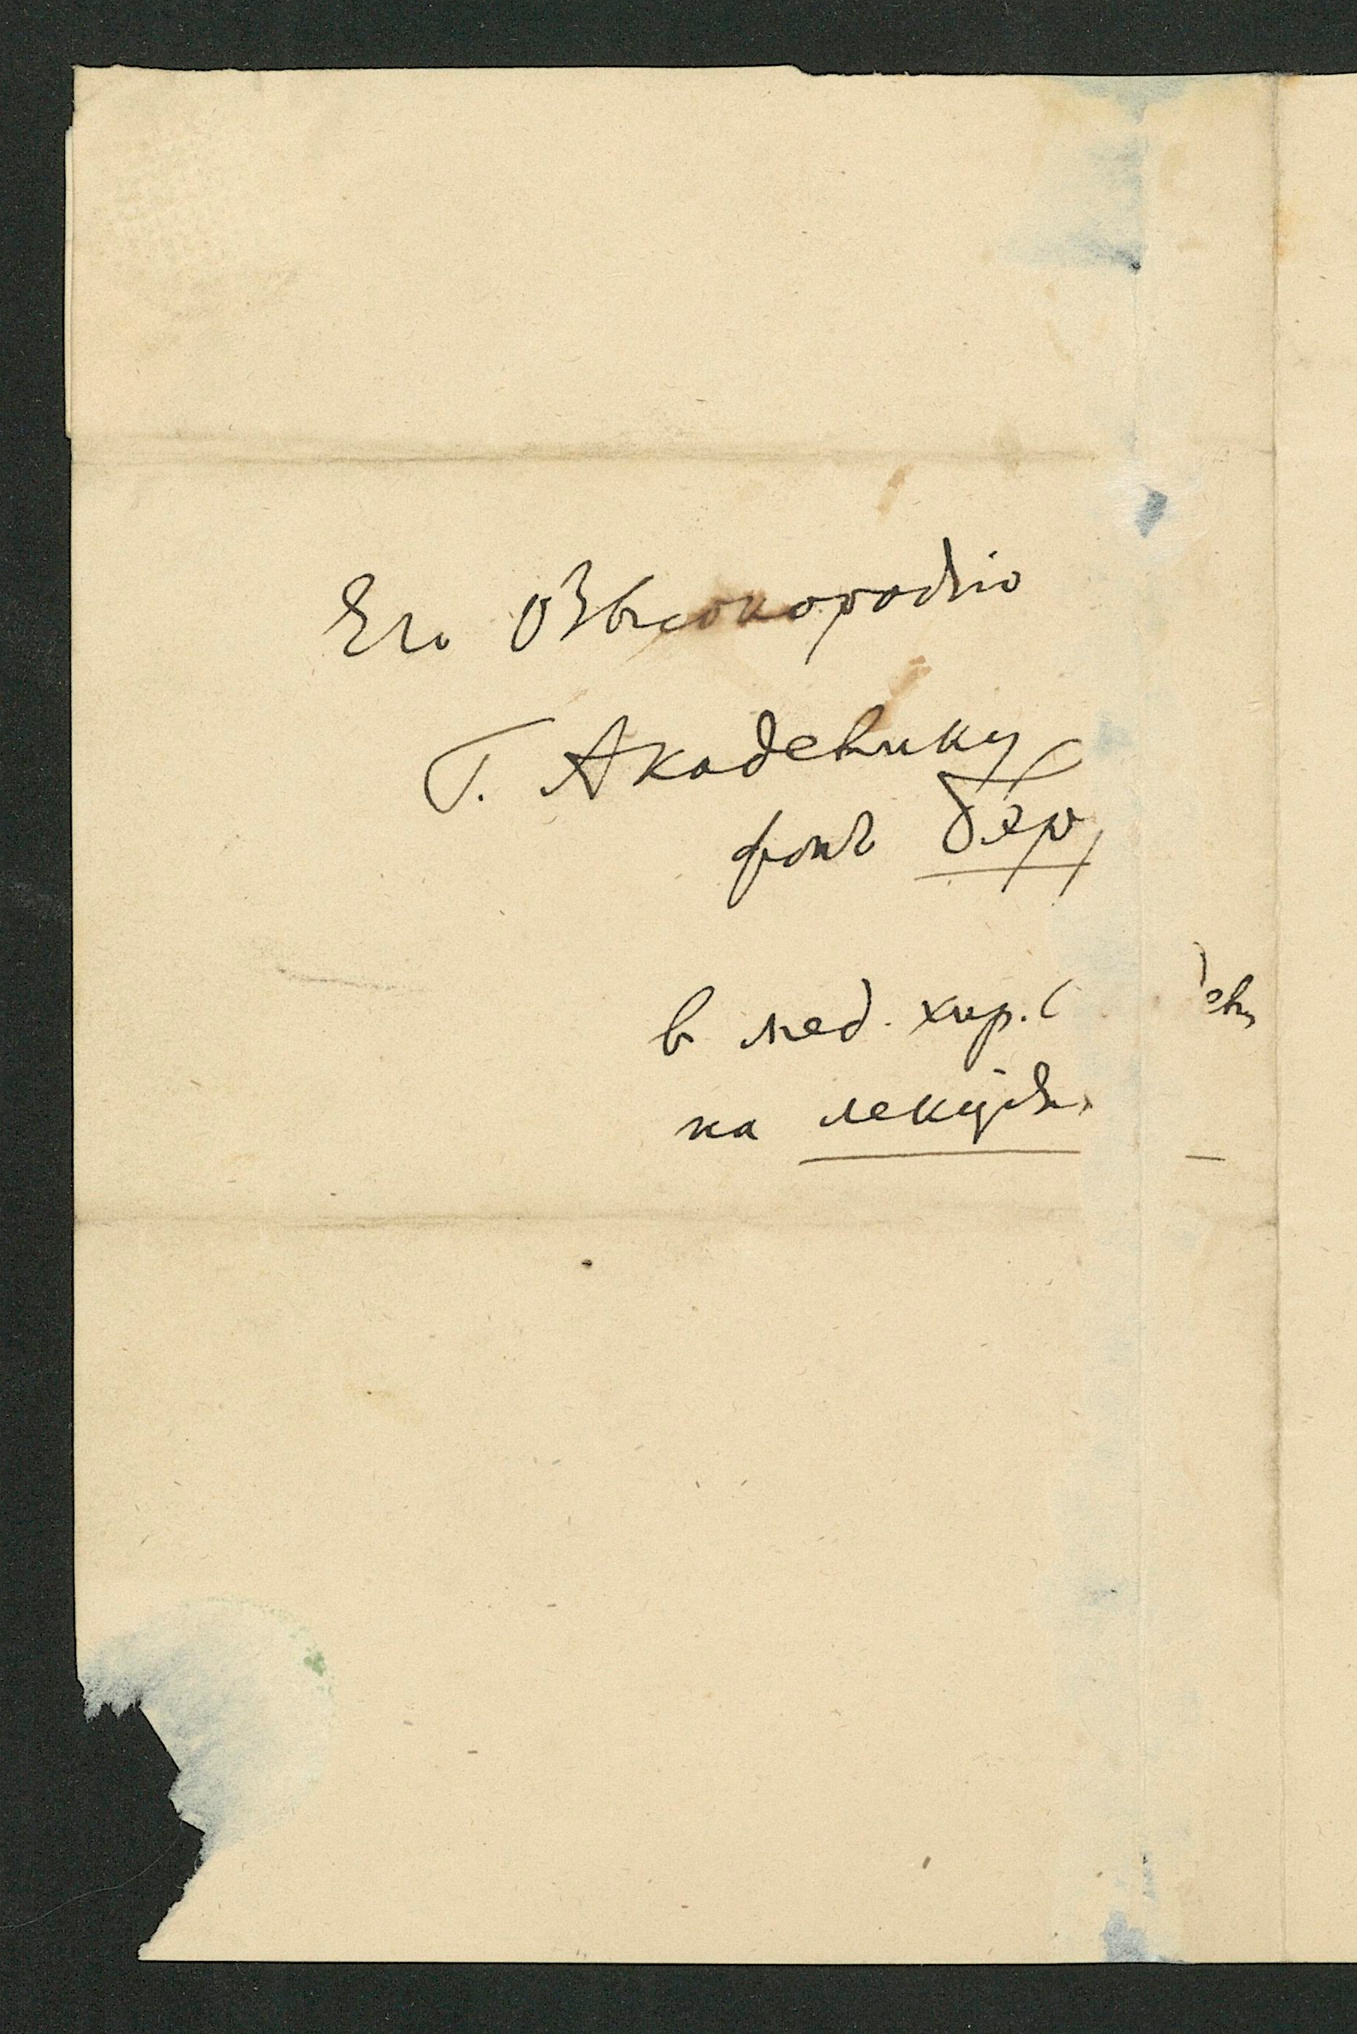 Его Высокородію
Г. Академику
фонъ Бэру
в мед. хир.
на лекціях